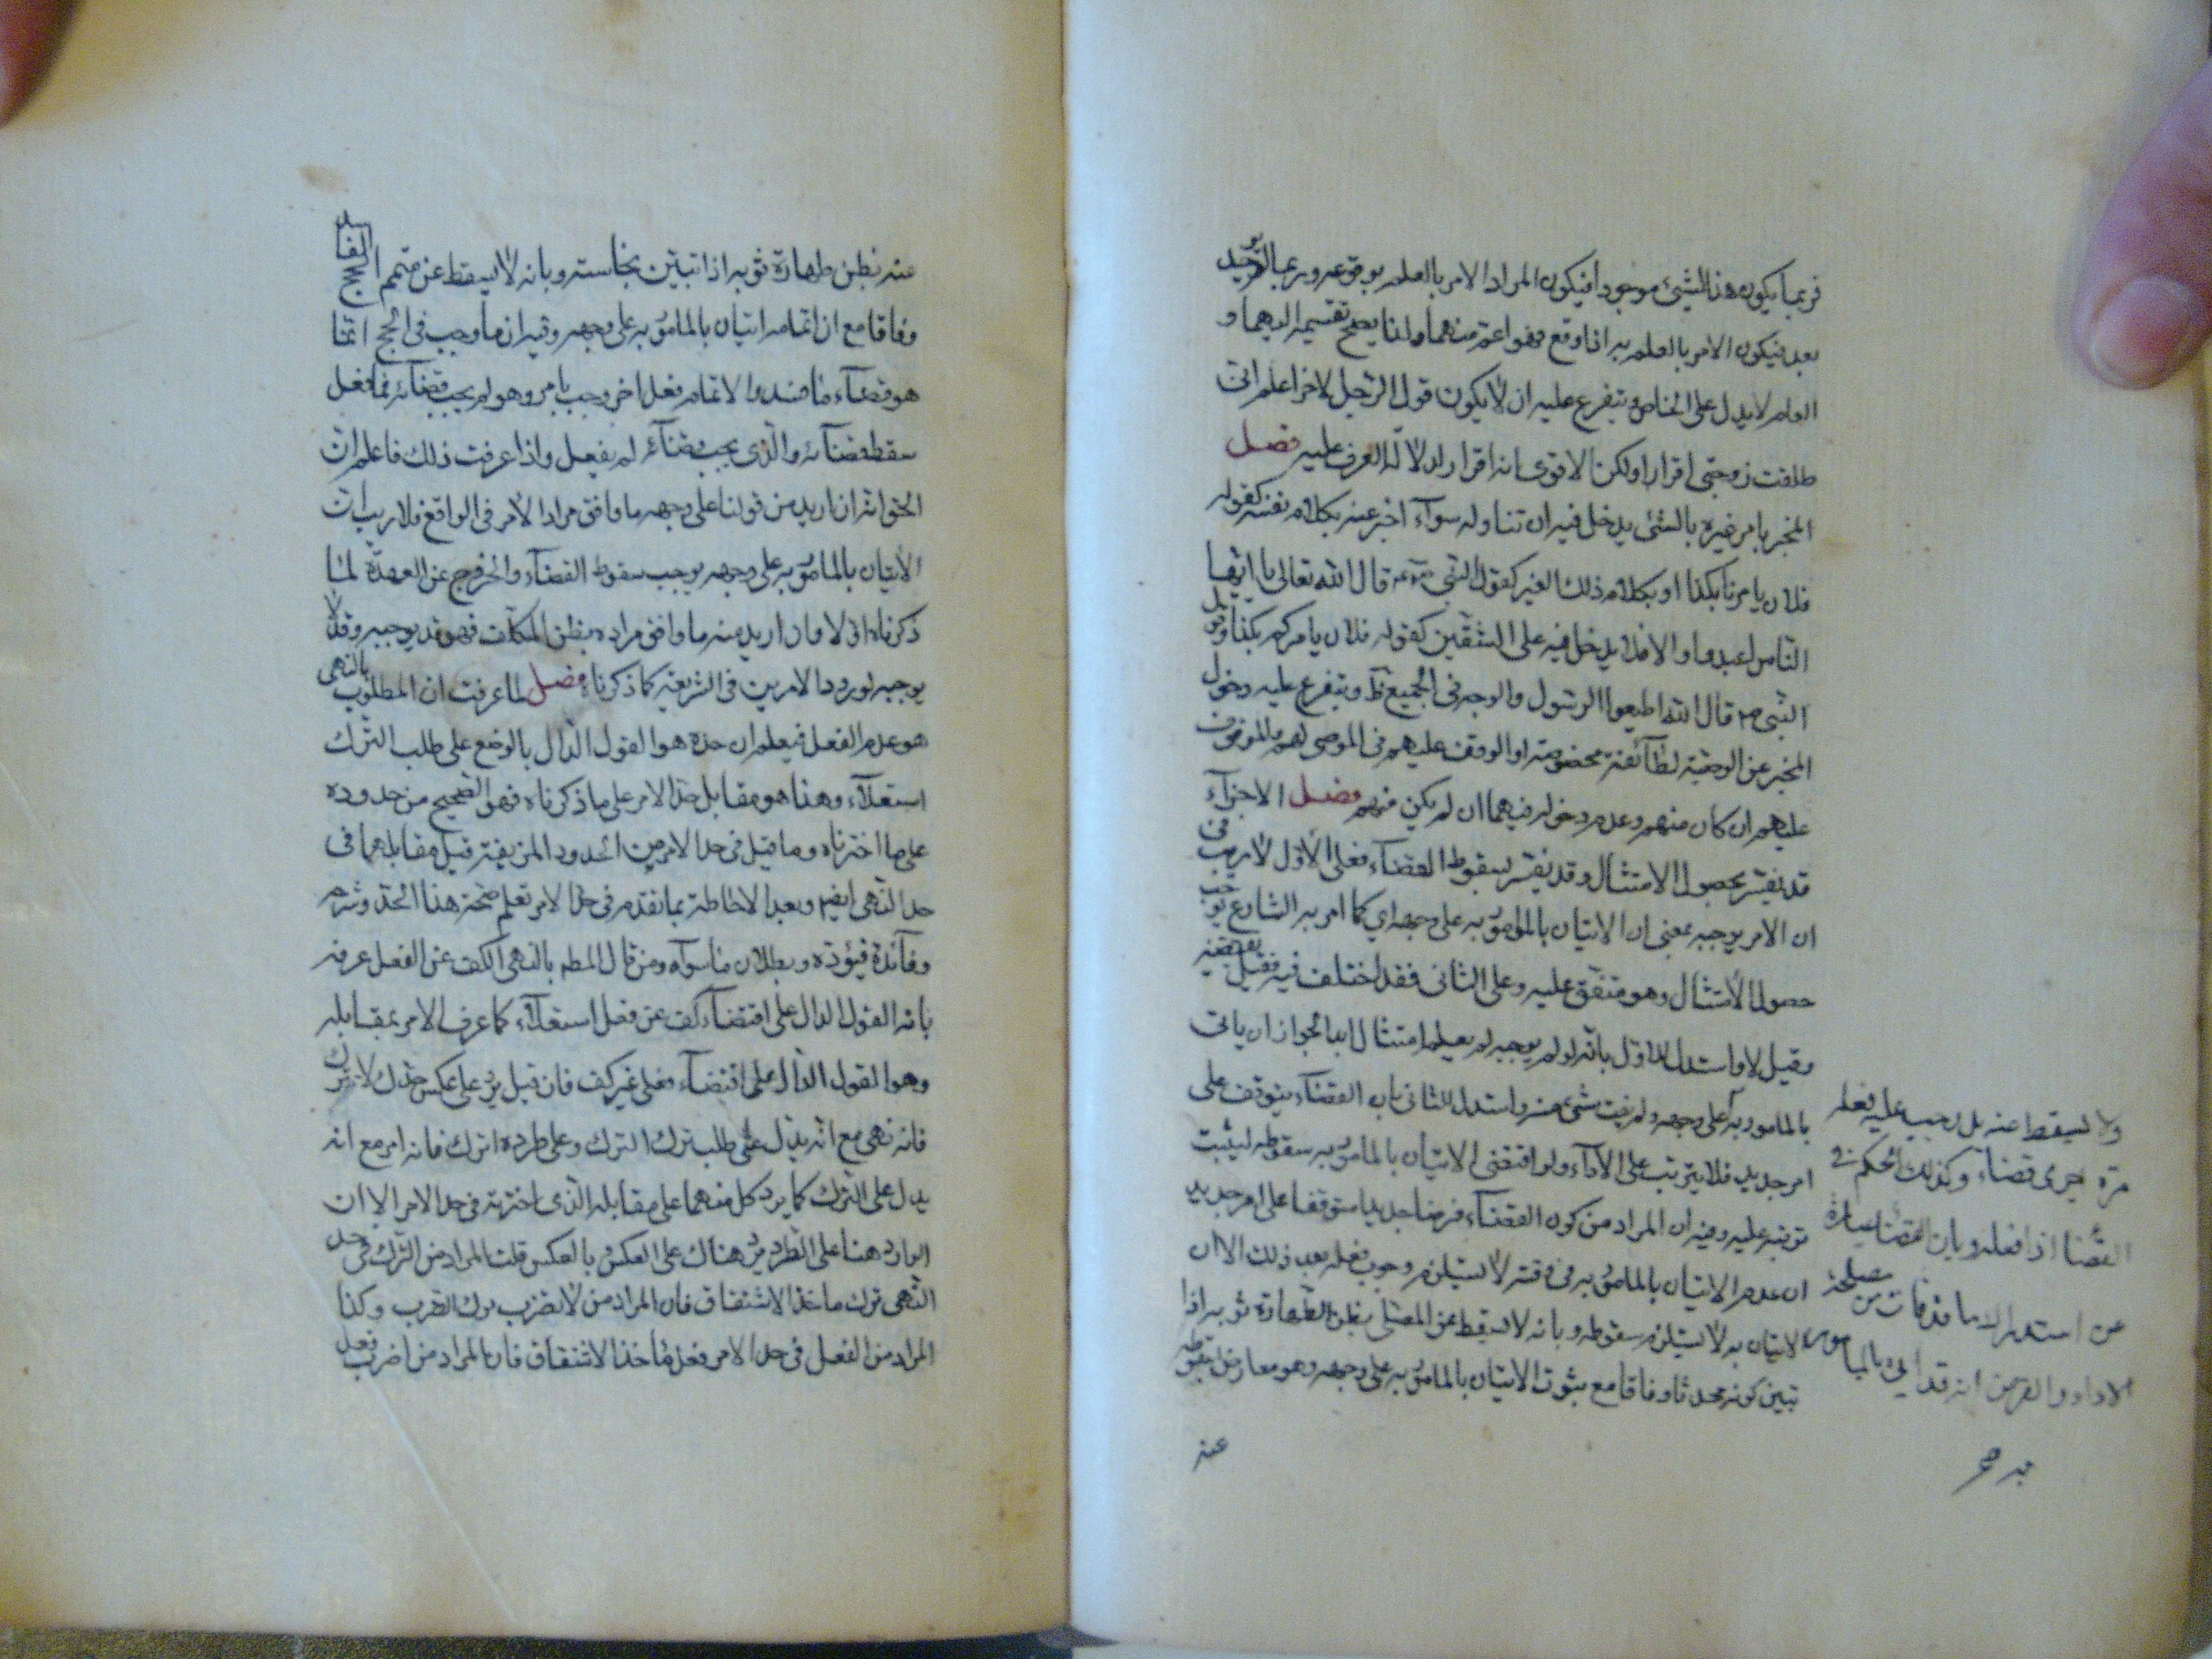 فربما يكون هذا الشيئ موجودا فيكون المراد الامر بالعلم بوقوعه وربما لا يوجد
بعد فيكون الامر بالعلم به اذا وقع فهو اعم منهما ولذا يصح تقسيمه اليهما و
العام لا يدل على الخاص ويتفرع عليه ان لا يكون قول الرجل لاخر اعلم انى
طلقت زوجتى اقرارا ولكن الاقوى انه اقرار لدلالة العرف عليه فصل
المخبر بامر غيره بالشئ يدخل فيه ان تناوله سوآء اخبر عنه بكلام نفسه كقوله
فلان يامرنا بكذا او بكلام ذلك الغير كقول النبى قال الله تعالى يا ايها
الناس اعبدوا والا فلا يدخل فيه على الشقين كقوله فلان يامركم بكذا وقول
النبى ص قال الله اطيعوا الرسول والوجه فى الجميع ظ ويتفرع عليه دخول
المخبر عن الوصية لطآئفة مخصوصة او الوقف عليهم فى الموصى لهم والموقوف
عليهم ان كان منهم وعدم دخوله فيهما ان لم يكن منهم فصل الاجزآء
قد يفسر بحصول الامتثال وقد يفسر بسقوط القضآء فعلى الاول لا ريب فى
ان الامر يوجبه بمعنى ان الاتيان بالمامور به على وجهه اي كما امر به الشارع يوجب
حصول الامتثال وهو متفق عليه وعلى الثانى فقد اختلف فيه فقيل يقتضيه
وقيل لا واستدل للاول بانه لو لم يوجبه لم يعلم امتثال ابدا لجواز ان ياتى
بالمامور به على وجهه ولم يفت شئ منه واستدل للثانى بان القضآء يتوقف على
امر جديد فلا يترتب على الادآء ولو اقتضى الاتيان بالمامور به سقوطه ليثبت
توقفه عليه وفيه ان المراد من كون القضآء فرضا جديدا متوقفا على امر جديد
ان عدم الاتيان بالمامور به فى وقته لا يستلزم وجوب فعله بعد ذلك الا ان
الاتيان به لا يستلزم سقوطه وبانه لا يسقط عن المصلى بظن الطهارة ثوبه اذا
تبين كونه محدثا وفاقا مع ثبوت الاتيان بالمامور به على وجهه وهو معارض بسقوطه
عنه
ولا يسقط عنه بل يجب عليه فعله
مرة اخرى قضاء وكذلك الحكم فى
القضا اذا فعله وبان القضا عبارة
عن استدراك ما قد فات من مصلحة
الاداء والفرض انه قد اتى بالمامور
به صح
عنه بظن طهارة ثوبه اذا تبين نجاسته وبانه لا يسقط عن متمم الحج الفاسد
وفاقا مع ان اتمامه اتيان بالمامور به على وجهه وفيه ان ما وجب فى الحج انما
هو قضآء ما افسده والاتمام فعل اخر وجب بامر وهو لم يجب قضآئه فما فعل
سقط قضآئه والذى يجب قضآئه لم يفعل واذا عرفت ذلك فاعلم ان
الحق انه ان اريد من قولنا على وجهه ما وافق مراد الآمر فى الواقع فلا ريب ان
الاتيان بالمامور به على وجهه يوجب سقوط القضآء والخروج عن العهدة لما
ذكرناه اولا وان اريد منه ما وافق مراده بظن المكلف فهو قد يوجبه وقد لا
يوجبه لورود الامرين فى الشريعة كما ذكرناه فصل لما عرفت ان المطلوب بالنهى
هو عدم الفعل فيعلم ان حده هو القول الدال بالوضع على طلب الترك
استعلآء وهذا هو مقابل حد الامر على ما ذكرناه فهو الصحيح من حدوده
على ما اخترناه وما قيل فى حد الامر من الحدود المزيفة قيل مقابلها فى
حد النهى ايضا وبعد الاحاطة بما تقدم فى حد الامر تعلم صحة هذا الحد وشرح
وفآئدة قيوده وبطلان ما سوآه ومن قال المط بالنهى الكف عن الفعل عرفه
بانه القول الدال على اقتضآء كف عن فعل استعلآء كما عرف الامر بمقابله
وهو القول الدال على اقتضآء فعل غير كف فان قيل يرد على عكس حدك لا تترك
فانه نهى مع انه يدل على طلب ترك الترك وعلى طرده اترك فانه امر مع انه
يدل على الترك كما يرد كل منهما على مقابله الذى اخترته فى حد الامر الا ان
الوارد هنا على الطرد يرد هناك على العكس وبالعكس قلت المراد من الترك فى حد
النهى ترك ماخذ الاشتقاق فان المراد من لا تضرب ترك الضرب وكذا
المراد من الفعل فى حد الامر فعل ماخذ الاشتقاق فان المراد من اضرب فعل